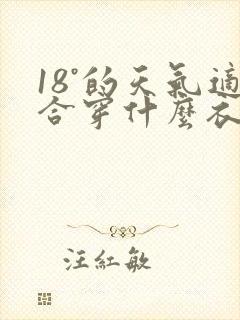 18°的天氣適
合穿什麼衣
汪紅敏